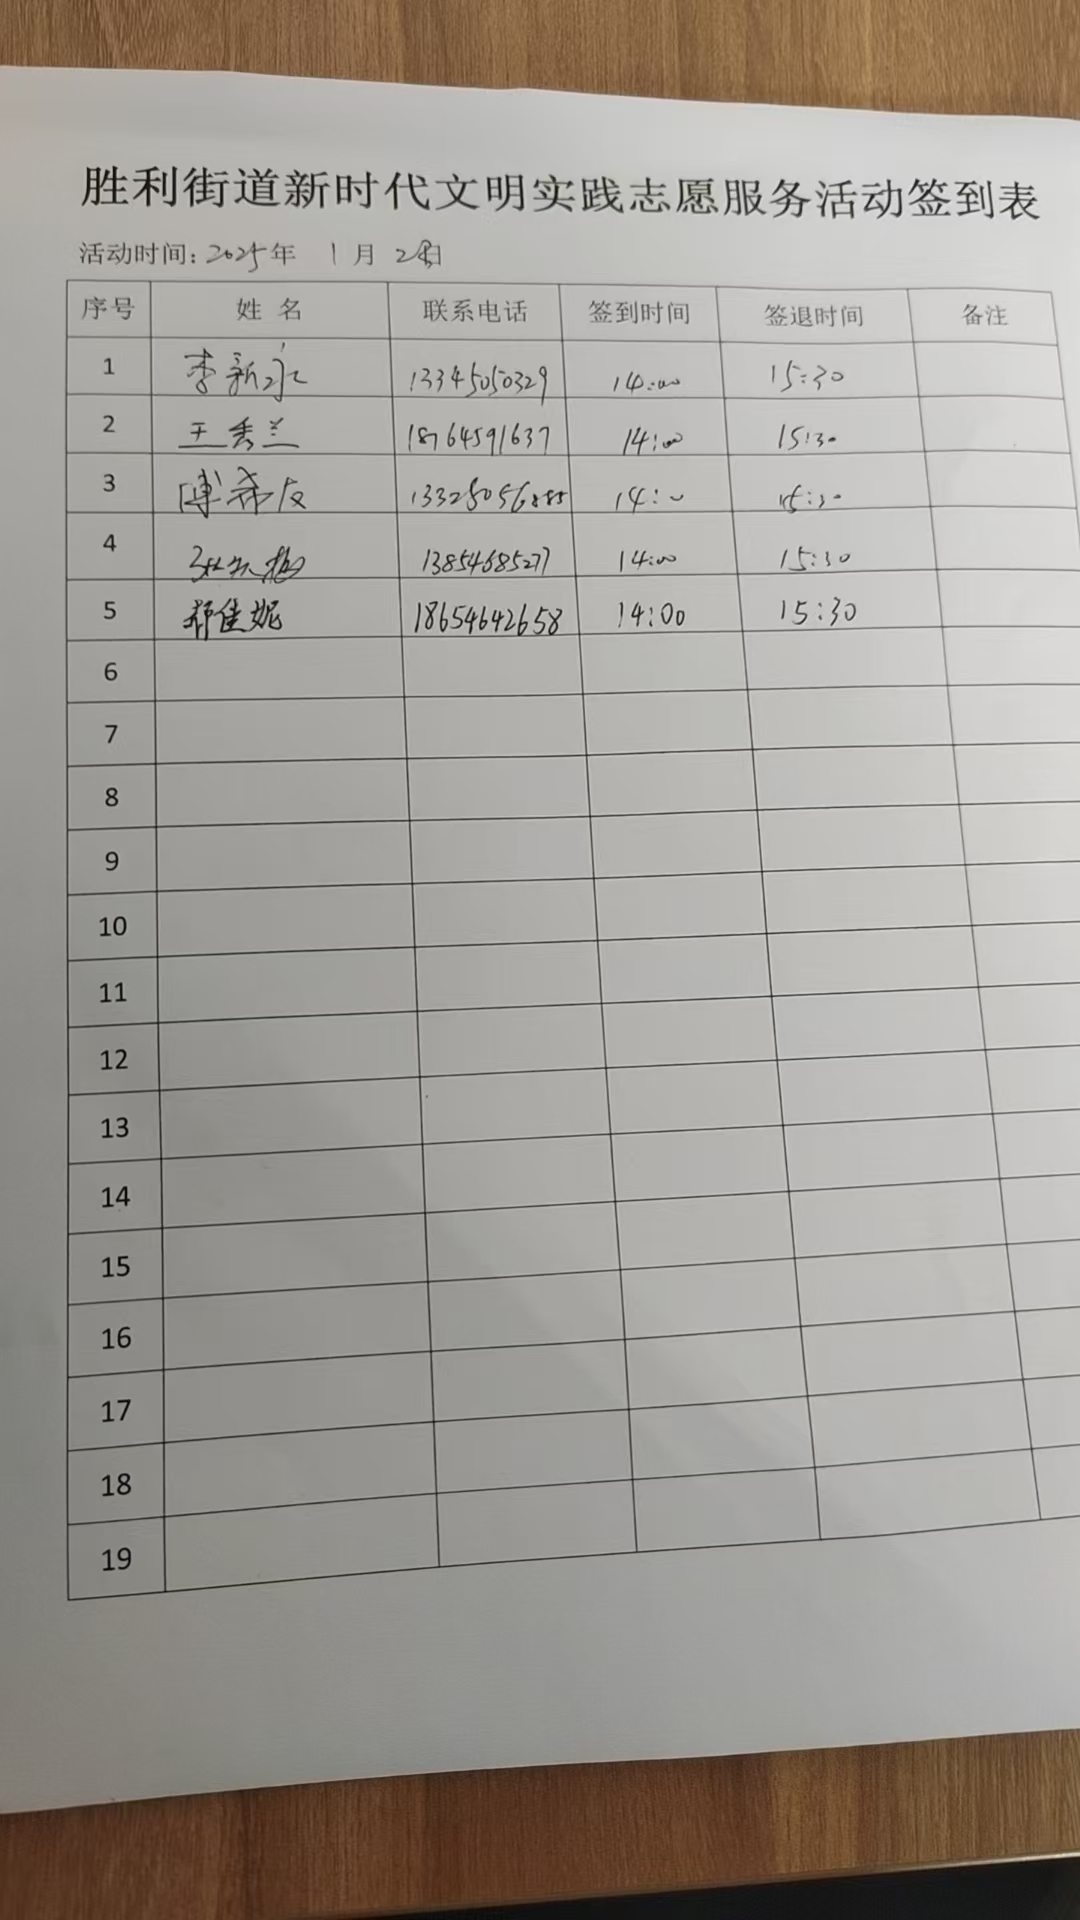 胜利街道新时代文明实践志愿服务活动签到表
活动时间: 2025年 1月 28日
序号 姓 名 联系电话 签到时间 签退时间 备注
1 李新永 13345050329 14:00 15:30
2 王秀兰 18764591637 14:00 15:30
3 傅希友 13325056888 14:00 15:30
4 13854685277 14:00 15:30
5 郝佳妮 18654642658 14:00 15:30
6
7
8
9
10
11
12
13
14
15
16
17
18
19